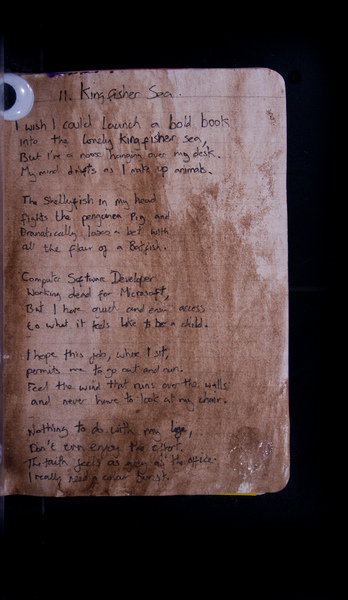 11. Kingfisher Sea.
I wish I could launch a bold book
into the lonely kingfisher sea,
But I've a noose hanging over my desk.
My mind drifts as I make up animals.
The Shellyfish in my head
fights the pengamon Pig and
Dramatically loses a bet with
all the flair of a Batfish.
Computer Software Developer
Working dead for Microsoft,
But I have quiet and easy access
to what it feels like to be a child.
I hope this job, where I sit,
permits me to go out and run.
Feel the wind that runs over the walls
and never have to look at my chair.
Nothing to do with my legs,
Don't even enjoy the effort.
The faith feels as grey as the office.
I really need a colour burst.